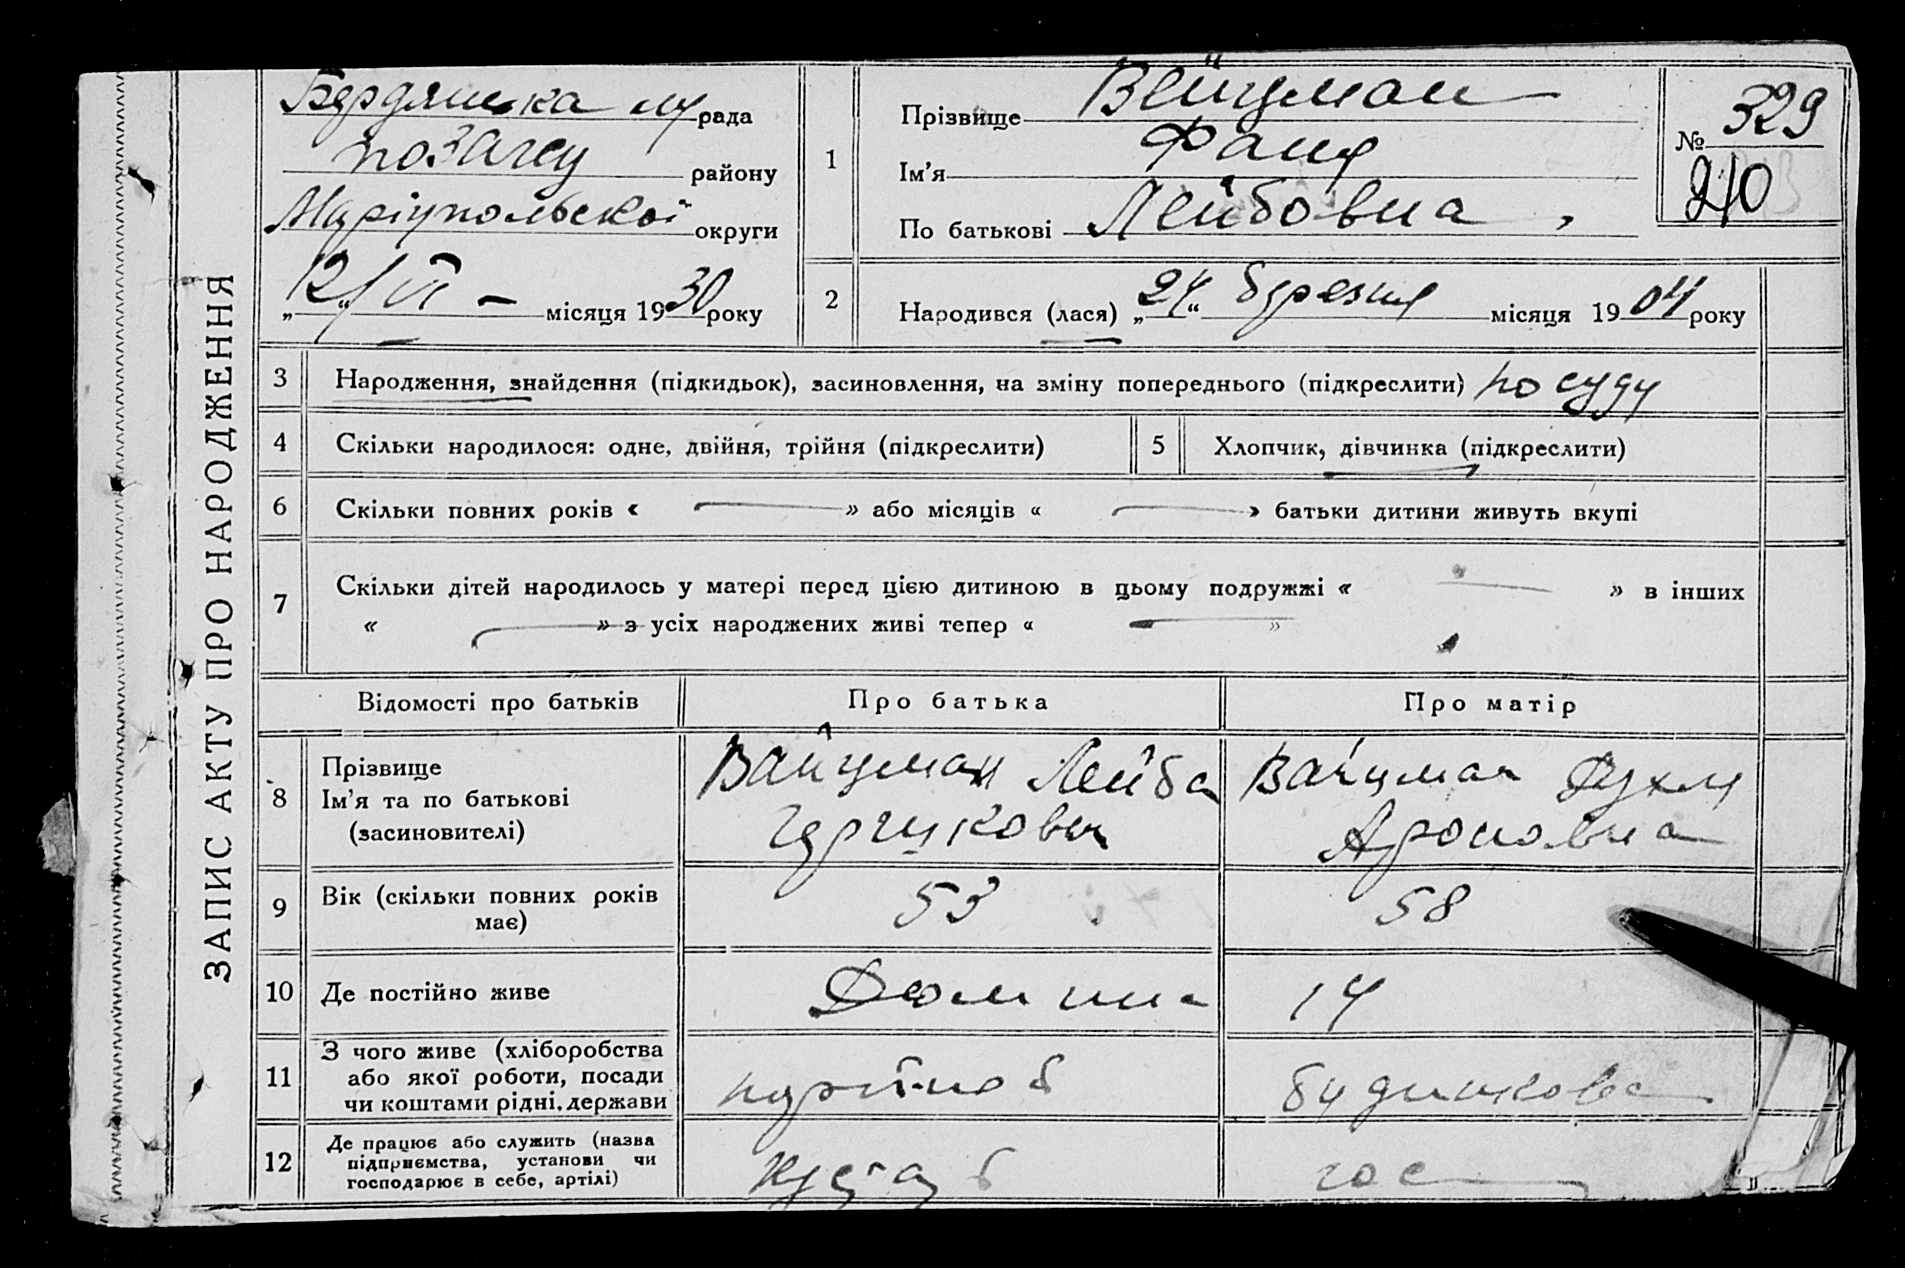 ЗАПИС АКТУ ПРО НАРОДЖЕННЯ
Бердянська рада
району
Маріупольської округи
„12/VI – місяця 1930 року
1
Прізвище Вейцман
Ім’я Фаня
По батькові Лейбовна
№ 329
210
2
Народився (лася) „24“ березня місяця 1904 року
3 Народження, знайдення (підкидьок), засиновлення, на зміну попереднього (підкреслити) по суду
4 Скільки народилося: одне, двійня, трійня (підкреслити)
5 Хлопчик, дівчинка (підкреслити)
6 Скільки повних років « — » або місяців « — » батьки дитини живуть вкупі
7 Скільки дітей народилось у матері перед цією дитиною в цьому подружжі « — » в інших
« — » з усіх народжених живі тепер « — »
Відомості про батьків Про батька Про матір
8
Прізвище
Ім’я та по батькові
(засиновителі)
Вайцман Лейба
Гершкович
Вайцман Рухля
Ароновна
9
Вік (скільки повних років
має)
53
58
10 Де постійно живе
14
11
З чого живе (хліборобства
або якої роботи, посади
чи коштами рідні, держави
12
Де працює або служить (назва
підприємства, установи чи
господарює в себе, артілі)